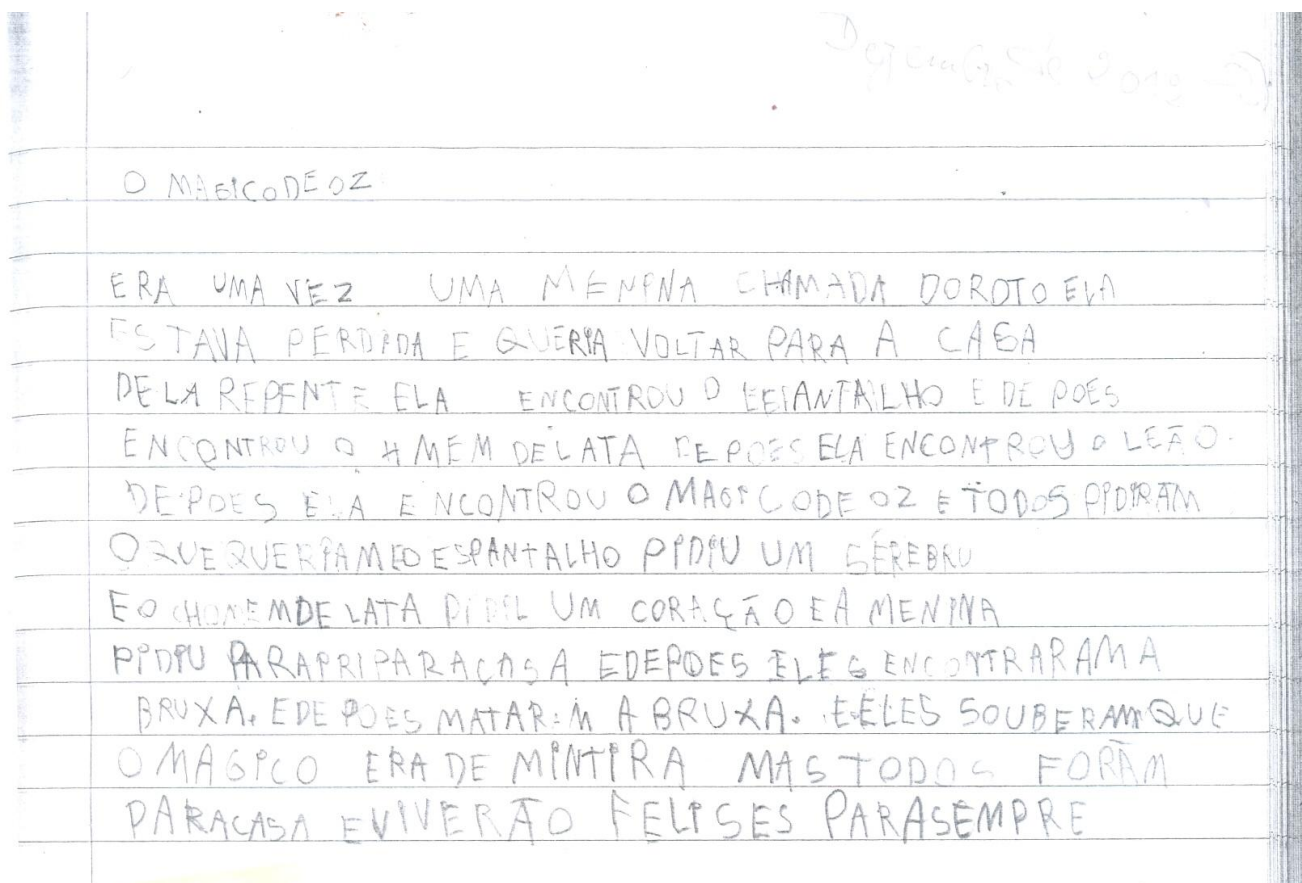 O MAGICODE OZ
ERA UMA VEZ UMA MENINA CHAMADA DOROTO ELA
ESTAVA PERDIDA E QUERIA VOLTAR PARA A CASA
DELA REPENTE ELA ENCONTROU O E DE POES
ENCONTROU O HMEM DE LATA DE POES ELA ENCONTROU O LEÃO.
DE POES ELA ENCONTROU O MAGICODE OZ E TODOS PIDIRAM
O QUE QUERIAM EO ESPANTALHO PIDIU UM SÉREBRU
E O CHOMEMDE LATA PIDIL UM CORAÇÃO E A MENINA
PIDIU PARAPRIPARACASA EDEPOES ELES ENCONTRARAM A
BRUXA. EDE POES MATARAM A BRUXA. E ELES SOUBERAM QUE
O MAGICO ERA DE MINTIRA MAS TODOS FORÃM
PARACASA EVIVERÃO FELISES PARASEMPRE